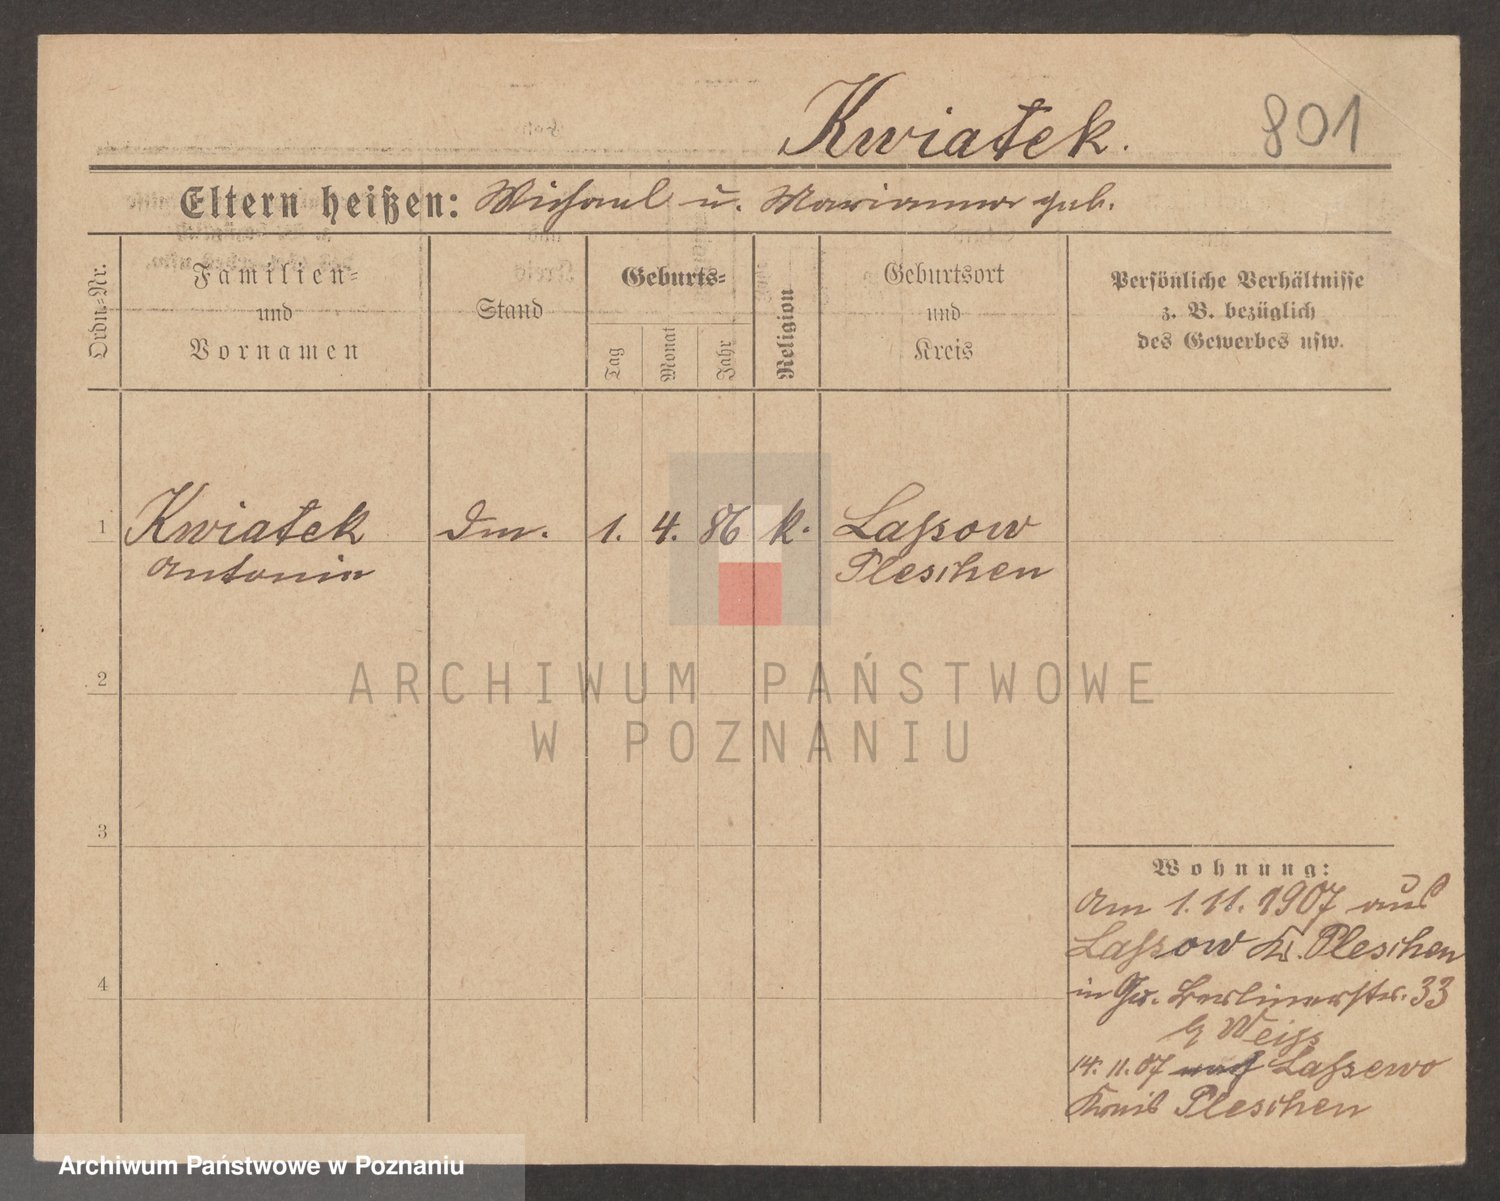 Kwiatek.
801
Eltern heißen: Michael u. Marianna geb.
Ordn.-Nr.
Familien-
und
Vornamen
Stand
Geburts-
Tag
Monat
Jahr
Religion
Geburtsort
und
Kreis
Persönliche Verhältnisse
z. B. bezüglich
des Gewerbes usw.
1 Kwiatek Dm. 1. 4. 86 k. Lassow
Antonie Pleschen
2
3
4
Wohnung:
Am 1.11.1907 aus
Lassow Kr. Pleschen
in Gr. Berlinerstr. 33
Weiss
14.11.07 nach Lassewo
Kreis Pleschen
ARCHIWUM PAŃSTWOWE
W POZNANIU
Archiwum Państwowe w Poznaniu